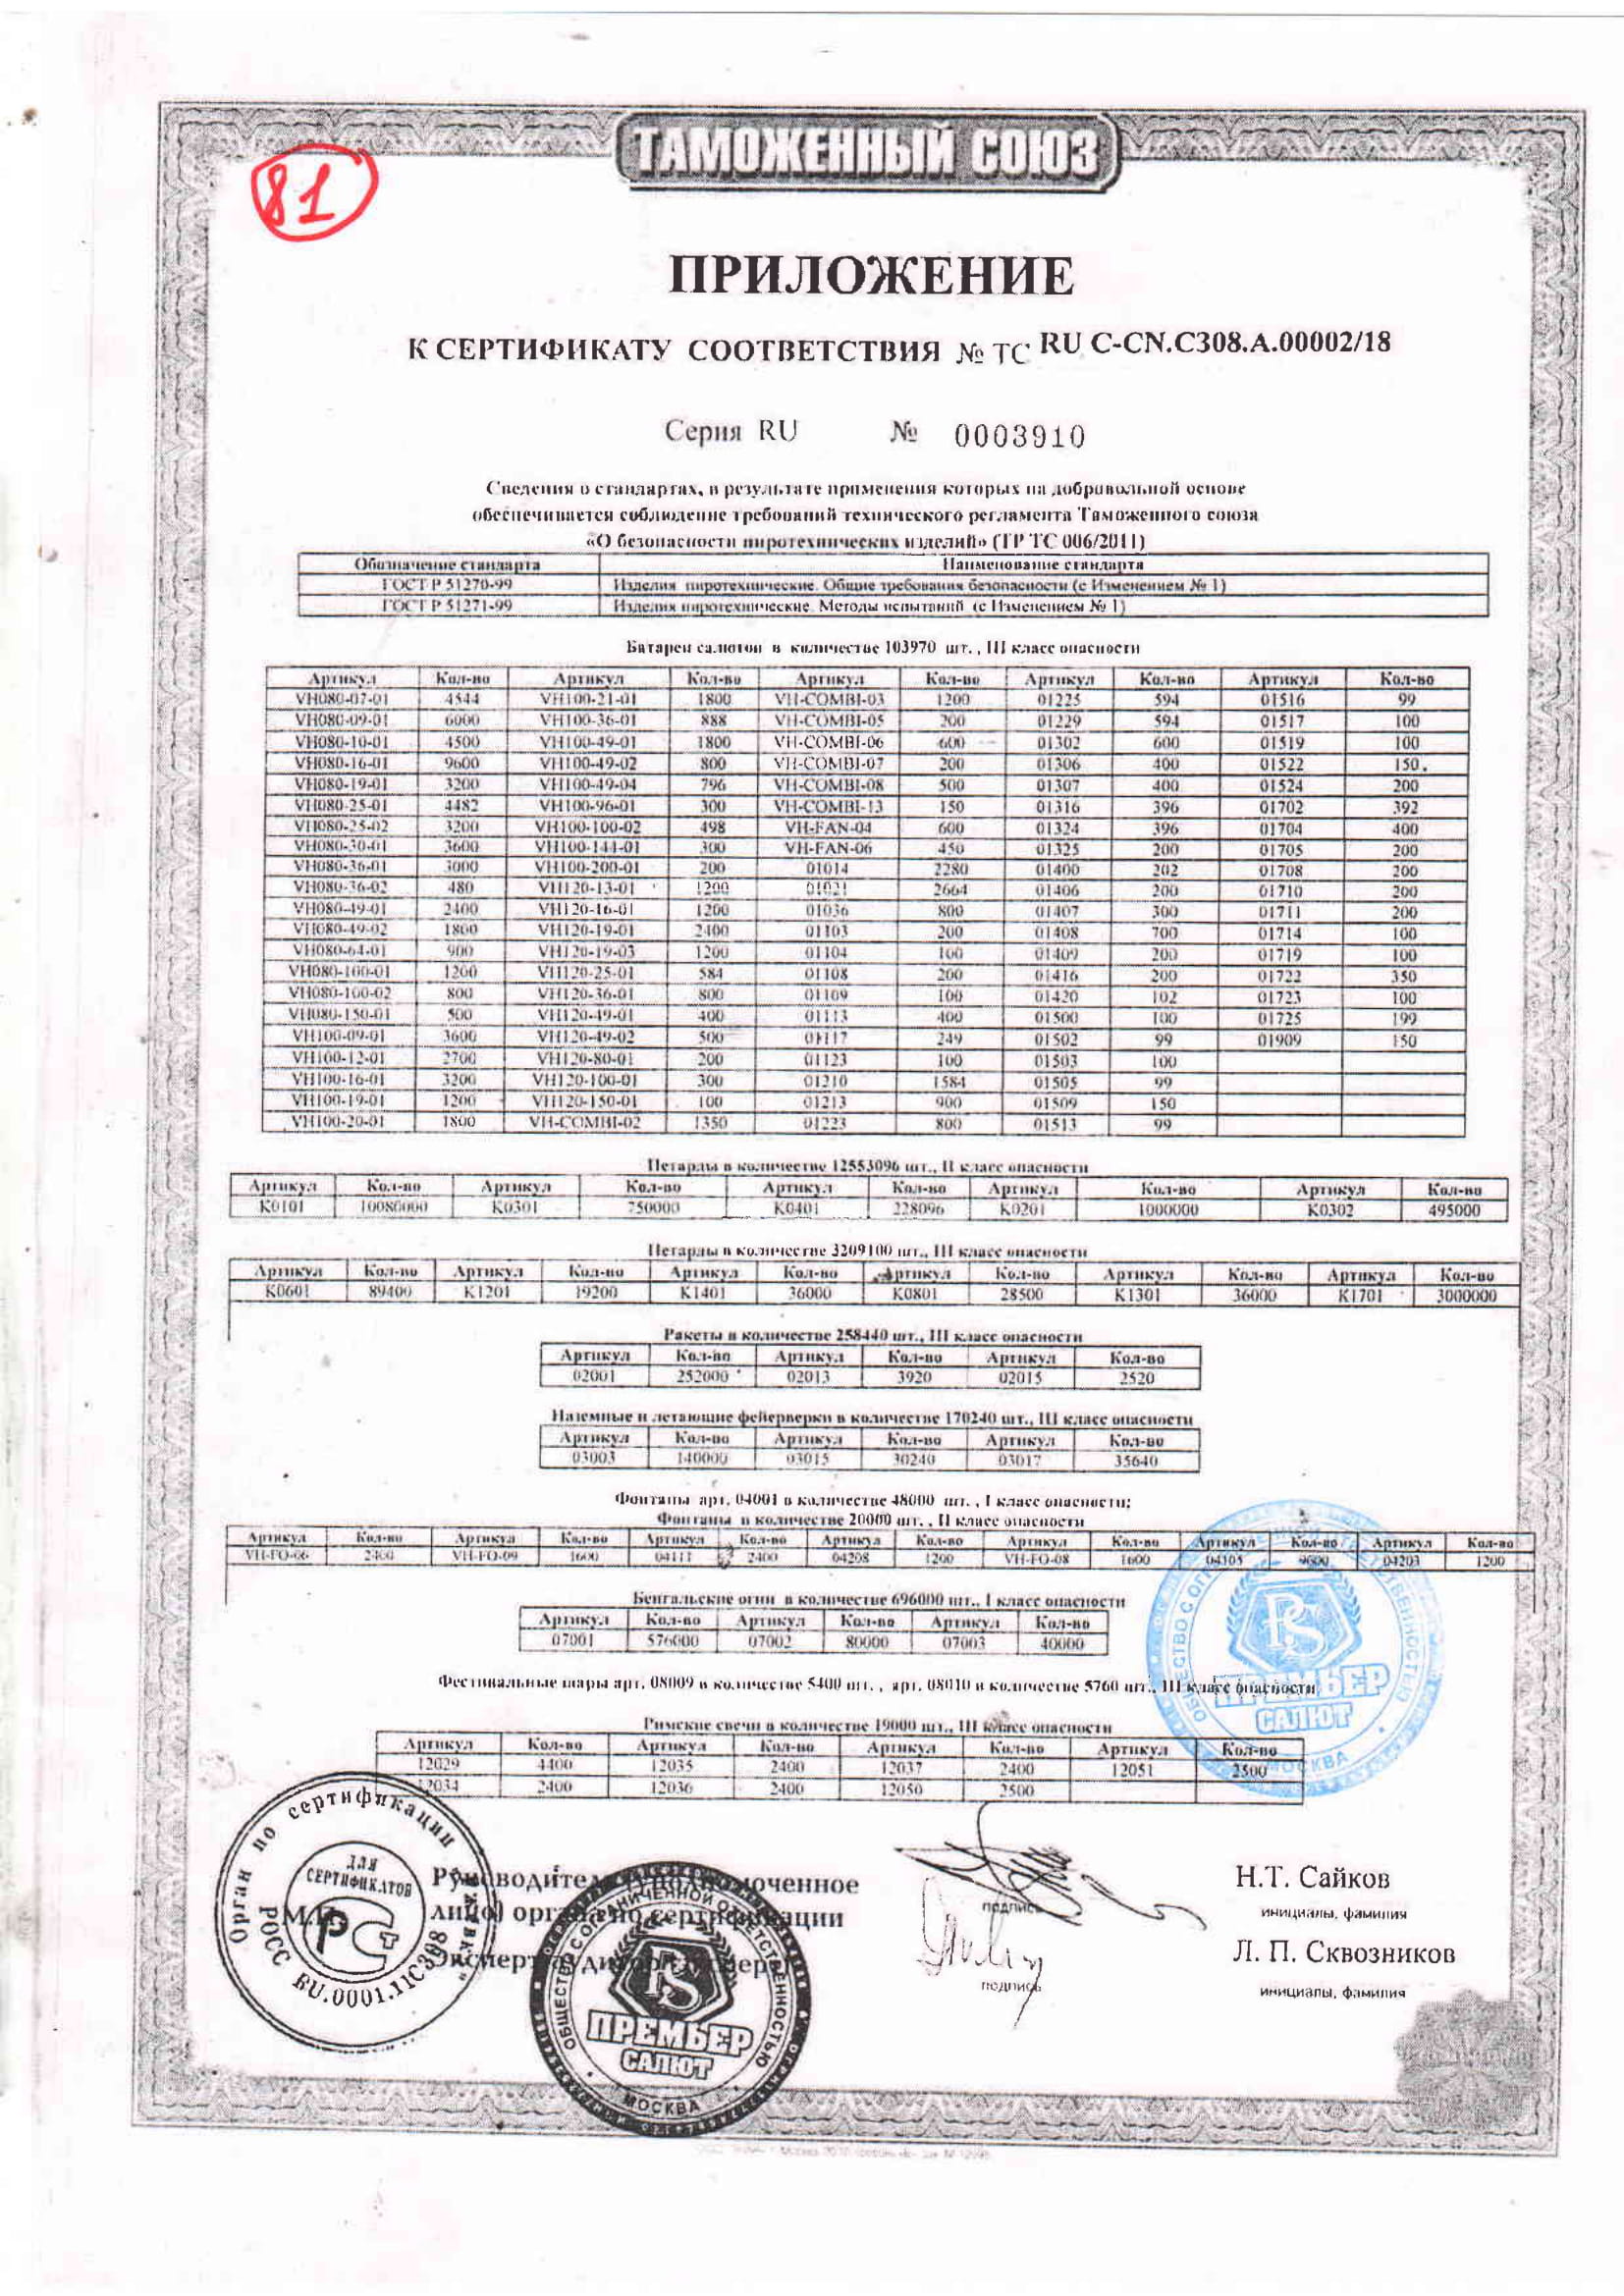 ТАМОЖЕННЫЙ СОЮЗ
81
ПРИЛОЖЕНИЕ
К СЕРТИФИКАТУ СООТВЕТСТВИЯ № ТС RU C-CN.C308.A.00002/18
Серия RU № 0003910
Сведения о стандартах, в результате применения которых на добровольной основе
обеспечивается соблюдение требований технического регламента Таможенного союза
«О безопасности пиротехнических изделий» (ТР ТС 006/2011)
Обозначение стандарта Наименование стандарта
ГОСТ Р 51270-99 Изделия пиротехнические. Общие требования безопасности (с Изменением № 1)
ГОСТ Р 51271-99 Изделия пиротехнические. Методы испытаний (с Изменением № 1)
Батареи салютов в количестве 103970 шт., III класс опасности
Артикул Кол-во Артикул Кол-во Артикул Кол-во Артикул Кол-во Артикул Кол-во
VH080-07-01 4544 VH100-21-01 1800 VH-COMBI-03 1200 01225 594 01516 99
VH080-09-01 6000 VH100-36-01 888 VH-COMBI-05 200 01229 594 01517 100
VH080-10-01 4500 VH100-49-01 1800 VH-COMBI-06 600 01302 600 01519 100
VH080-16-01 9600 VH100-49-02 800 VH-COMBI-07 200 01306 400 01522 150
VH080-19-01 3200 VH100-49-04 796 VH-COMBI-08 500 01307 400 01524 200
VH080-25-01 4482 VH100-96-01 300 VH-COMBI-13 150 01316 396 01702 392
VH080-25-02 3200 VH100-100-02 498 VH-FAN-04 600 01324 396 01704 400
VH080-30-01 3600 VH100-144-01 300 VH-FAN-06 450 01325 200 01705 200
VH080-36-01 3000 VH100-200-01 200 01014 2280 01400 202 01708 200
VH080-36-02 480 VH120-13-01 1200 01021 2664 01406 200 01710 200
VH080-49-01 2400 VH120-16-01 1200 01036 800 01407 300 01711 200
VH080-49-02 1800 VH120-19-01 2400 01103 200 01408 700 01714 100
VH080-64-01 900 VH120-19-03 1200 01104 100 01409 200 01719 100
VH080-100-01 1200 VH120-25-01 584 01108 200 01416 200 01722 350
VH080-100-02 800 VH120-36-01 800 01109 100 01420 102 01723 100
VH080-150-01 500 VH120-49-01 400 01113 400 01500 100 01725 199
VH100-09-01 3600 VH120-49-02 500 01117 249 01502 99 01909 150
VH100-12-01 2700 VH120-80-01 200 01123 100 01503 100
VH100-16-01 3200 VH120-100-01 300 01210 1584 01505 99
VH100-19-01 1200 VH120-150-01 100 01213 900 01509 150
VH100-20-01 1800 VH-COMBI-02 1350 01223 800 01513 99
Петарды в количестве 12553096 шт., II класс опасности
Артикул Кол-во Артикул Кол-во Артикул Кол-во Артикул Кол-во Артикул Кол-во
K0101 10080000 K0301 750000 K0401 228096 K0201 1000000 K0302 495000
Петарды в количестве 3209100 шт., III класс опасности
Артикул Кол-во Артикул Кол-во Артикул Кол-во Артикул Кол-во Артикул Кол-во Артикул Кол-во
K0601 89400 K1201 19200 K1401 36000 K0801 28500 K1301 36000 K1701 3000000
Ракеты в количестве 258440 шт., III класс опасности
Артикул Кол-во Артикул Кол-во Артикул Кол-во
02001 252000 02013 3920 02015 2520
Наземные и летающие фейерверки в количестве 170240 шт., III класс опасности
Артикул Кол-во Артикул Кол-во Артикул Кол-во
03003 140000 03015 30240 03017 35640
Фонтаны арт. 04001 в количестве 48000 шт., I класс опасности;
Фонтаны в количестве 20000 шт., II класс опасности
Артикул Кол-во Артикул Кол-во Артикул Кол-во Артикул Кол-во Артикул Кол-во Артикул Кол-во Артикул Кол-во
VH-FO-06 2400 VH-FO-09 1600 04111 2400 04208 1200 VH-FO-08 1600 04105 9600 04203 1200
Бенгальские огни в количестве 696000 шт., I класс опасности
Артикул Кол-во Артикул Кол-во Артикул Кол-во
07001 576000 07002 80000 07003 40000
Фестивальные шары арт. 08009 в количестве 5400 шт., арт. 08010 в количестве 5760 шт., III класс опасности
Римские свечи в количестве 19000 шт., III класс опасности
Артикул Кол-во Артикул Кол-во Артикул Кол-во Артикул Кол-во
12029 4400 12035 2400 12037 2400 12051 2500
12034 2400 12036 2400 12050 2500
PS
ПРЕМЬЕР
САЛЮТ
МОСКВА
Орган по сертификации
ДЛЯ
СЕРТИФИКАТОВ
РОСС RU.0001.11С308
М.П.
Руководитель (уполномоченное
лицо) органа по сертификации
подпись
Н.Т. Сайков
инициалы, фамилия
Эксперт-аудитор (эксперт)
подпись
Л. П. Сквозников
инициалы, фамилия
ОБЩЕСТВО С ОГРАНИЧЕННОЙ ОТВЕТСТВЕННОСТЬЮ
PS
ПРЕМЬЕР
САЛЮТ
МОСКВА